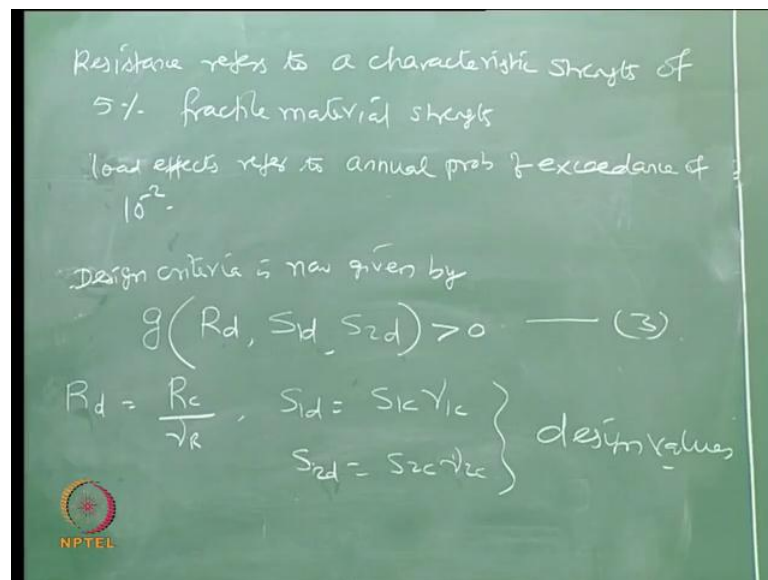 Resistance refers to a characteristic strength of
5% fractile material strength
load effects refer to annual prob of exceedance of
10⁻².
Design criteria is now given by
g(Rd, S1d, S2d) > 0 —— (3)
Rd = Rc / γR , S1d = S1c γ1c
S2d = S2c γ2c } design values
NPTEL